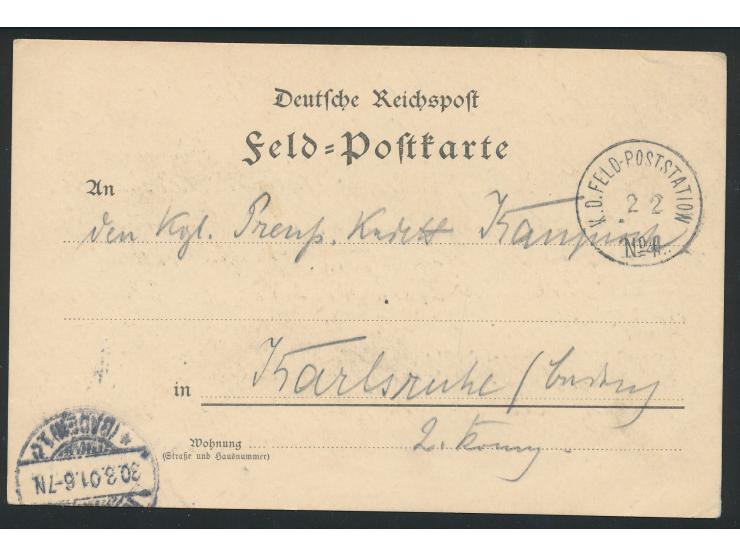 Deutsche Reichspost
Feld=Postkarte
K.D. FELD-POSTSTATION
2 2
No 4.
An
den Kgl. Preuß. Kadett
in Karlsruhe / Baden
Wohnung 2. Komp.
(Straße und Hausnummer)
(BADEN)
30.3.01.6-7N.